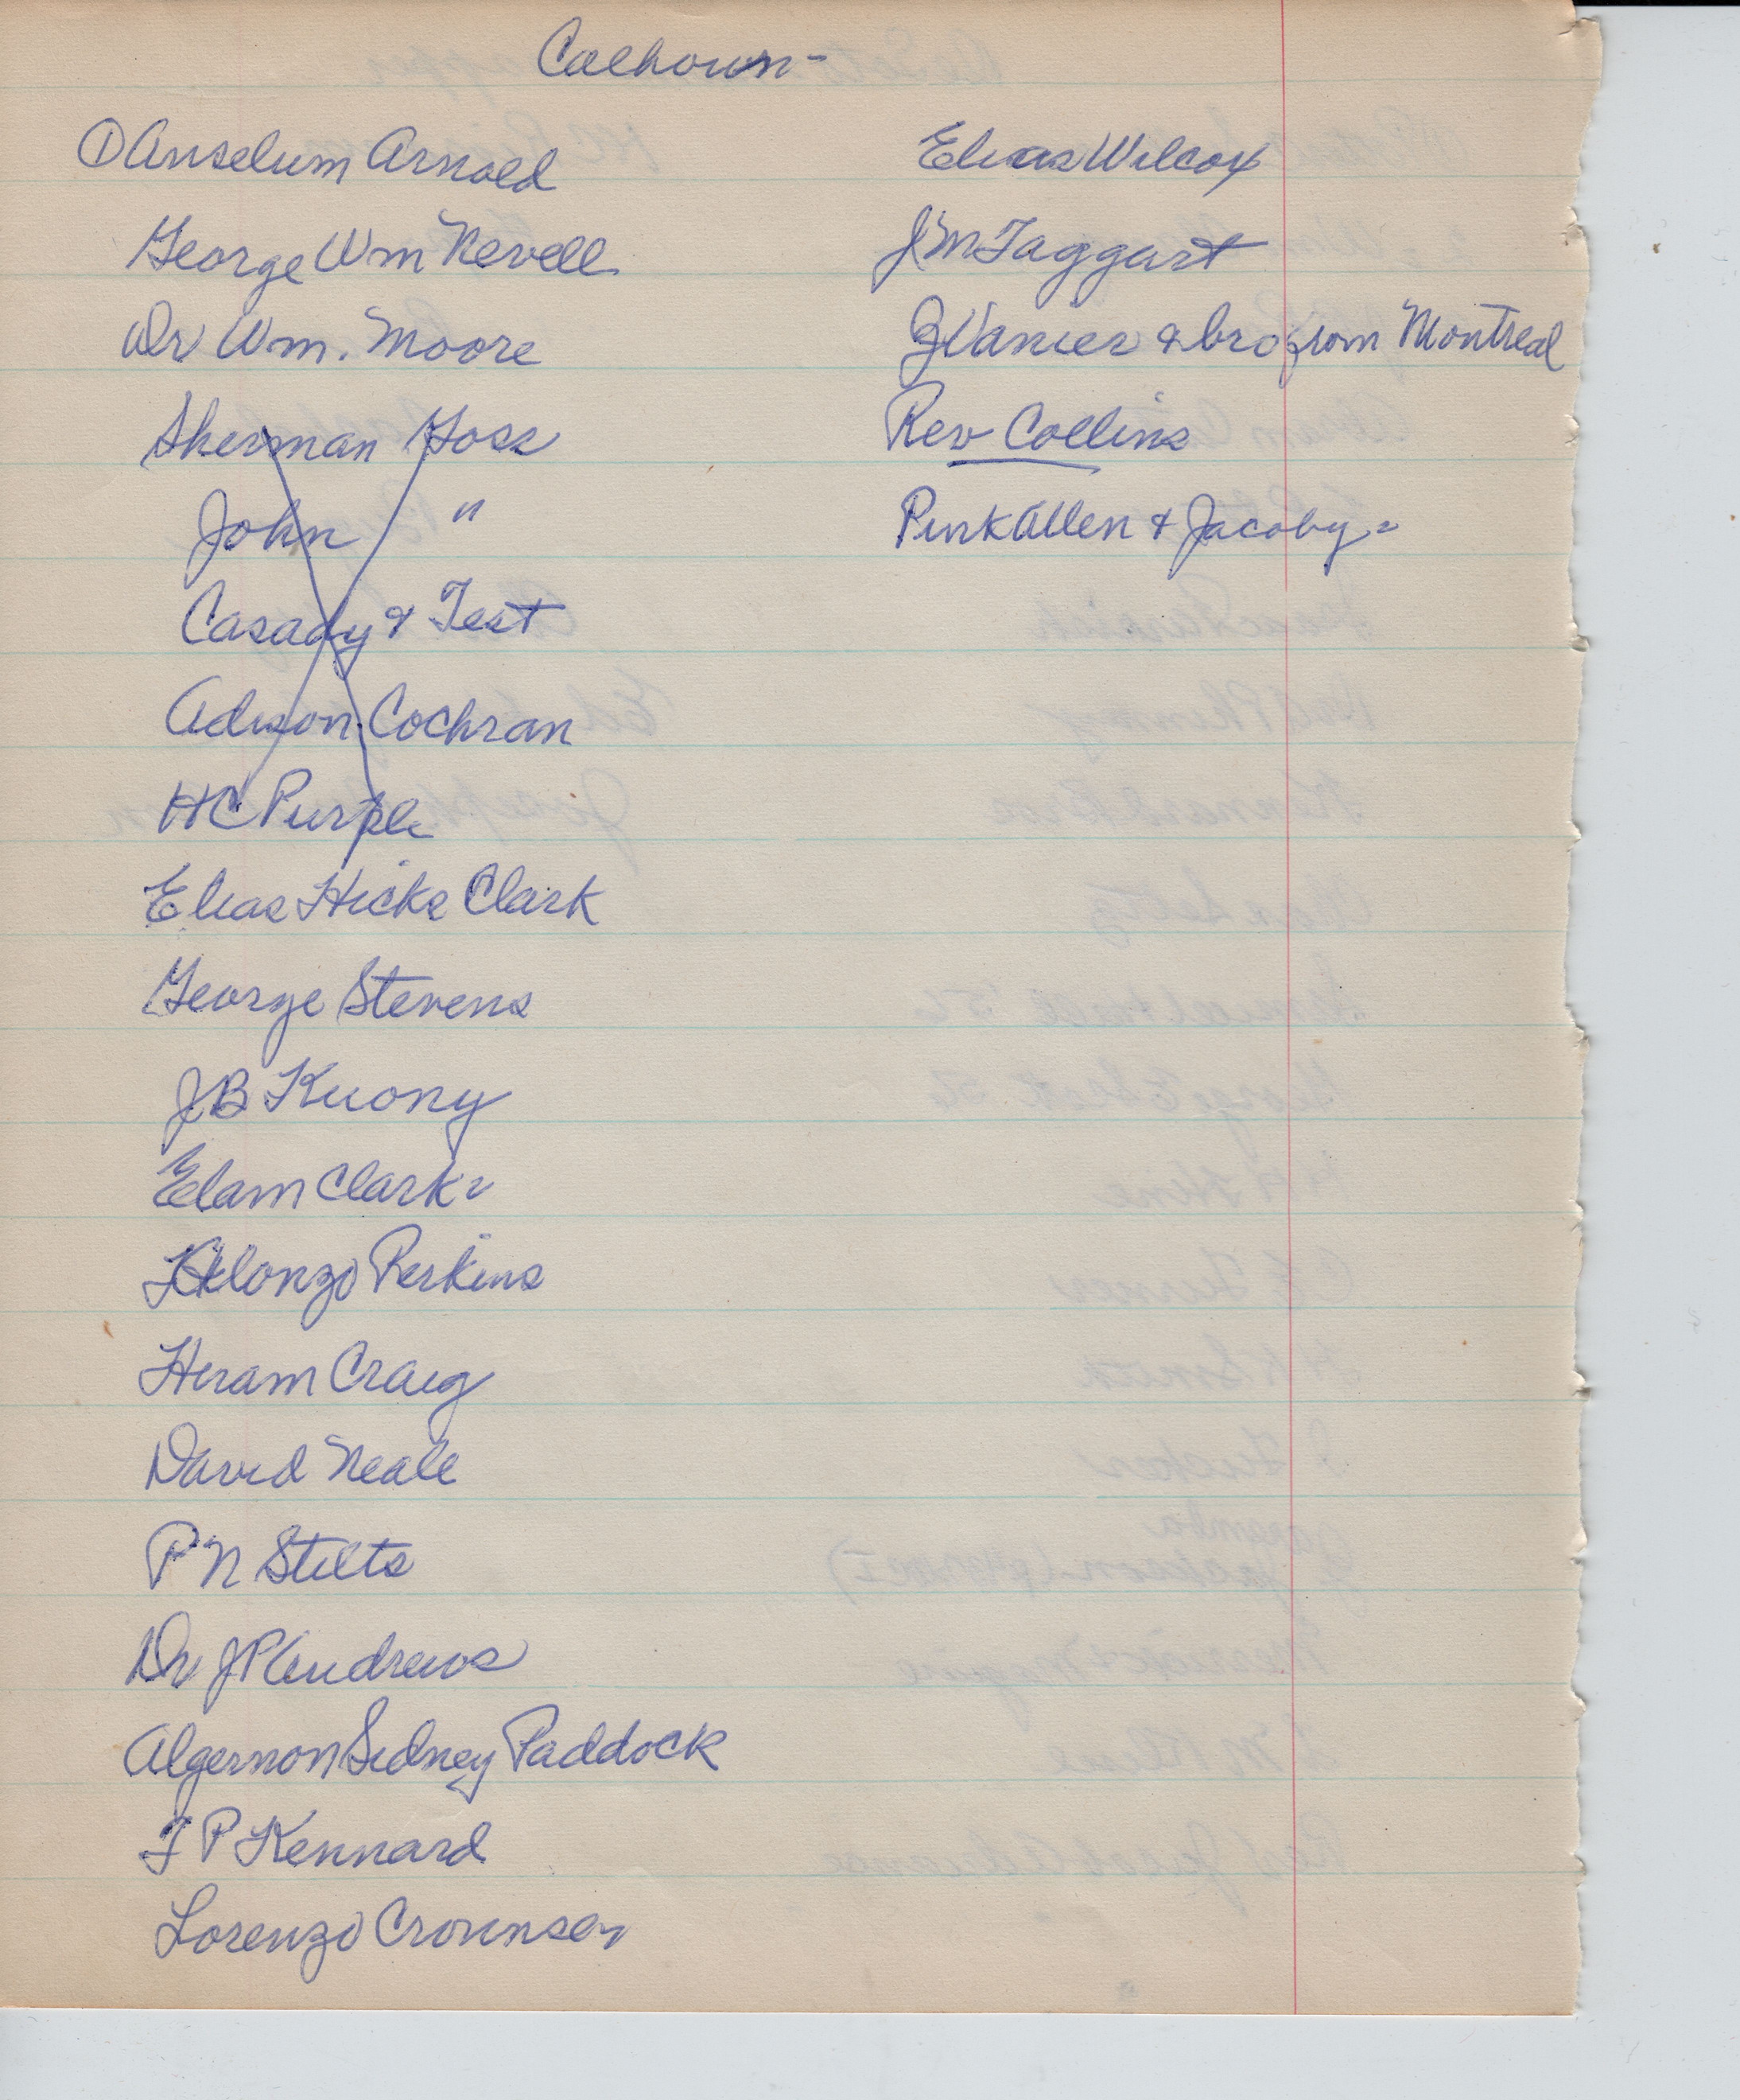 Calhoun-
① Anselum Arnold
George Wm Nevell
Dr Wm. Moore
Sherman Goss
John "
Casady & Test
Adison Cochran
HC Purple
Elias Hicks Clark
George Stevens
JB Kuony
Elam Clark
Alonzo Perkins
Hiram Craig
David Neale
P N Stilts
Dr JP Andrews
Algernon Sidney Paddock
T P Kennard
Lorenzo Crounse
Elias Wilcox
J M Taggart
Vanier & bro from Montreal
Rev Collins
Pink Allen & Jacoby